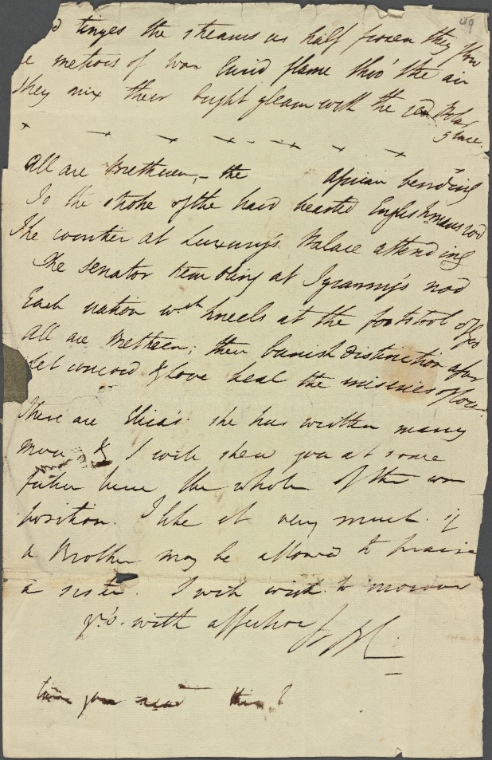 tinges the streams as half frozen they flow
meteors of War lurid flame thro' the air
They mix their bright gleam with the red Polar
glare
All are Brethren,– the African bending
To the stroke of the hard hearted Englishmans rod
The courtier at Luxury's Palace attending
The senator trembling at Tyranny's nod
Each nation wch kneels at the footstool of God
All are Brethren; then banish distinction afar
Let concord & love heal the miseries of War.
These are Eliza's she has written many
more & I will shew you at some
future time the whole of the com
position. I like it very much if
a Brother may be allowed to praise
a sister. I will write to morrow
yrs. with affection
you read this?